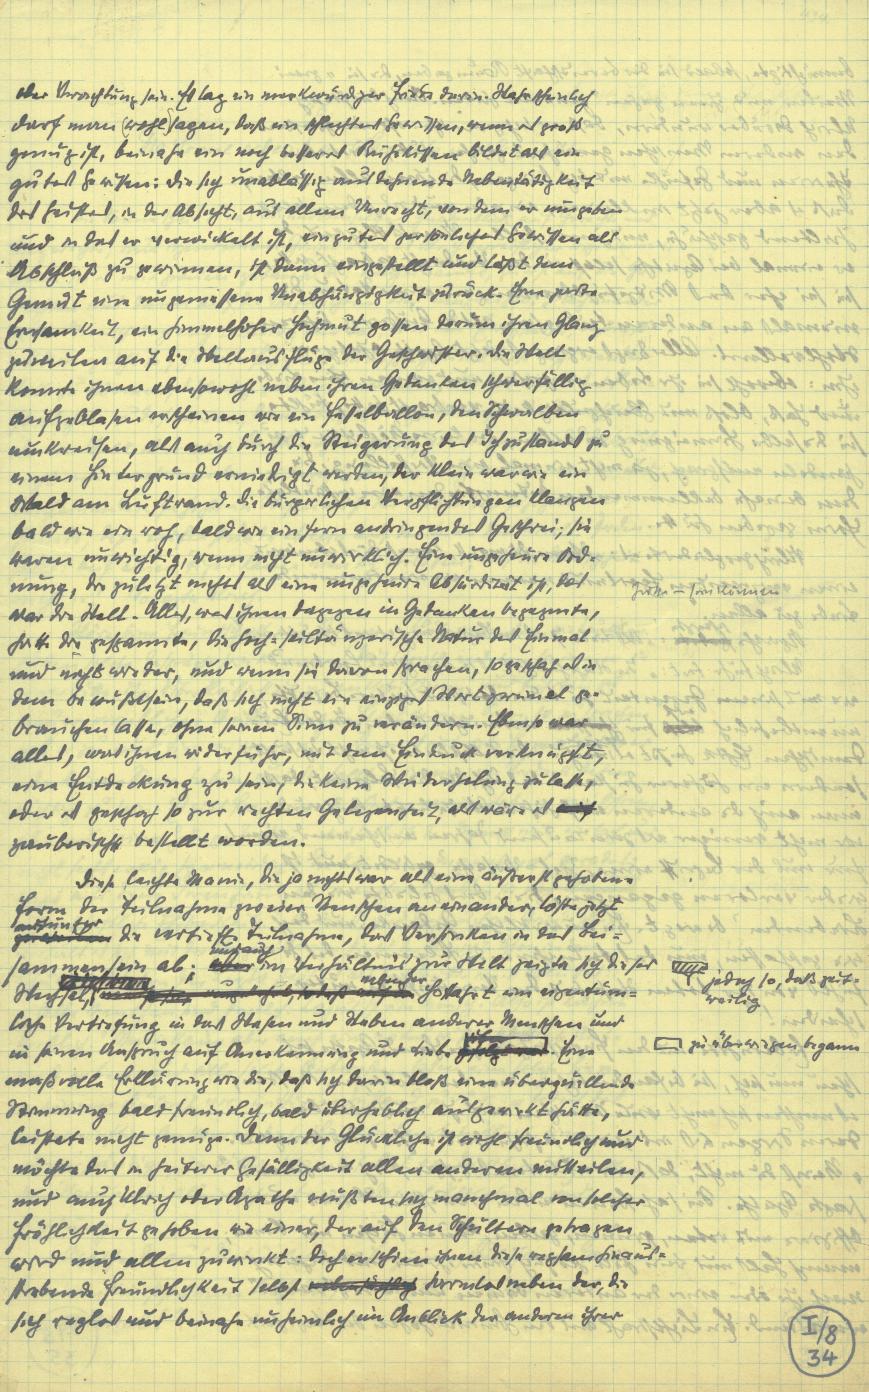 oder Verachtung sein. Es lag ein merkwürdiger Friede darin. Wahrscheinlich
darf man (wohl) sagen, daß ein schlechtes Gewissen, wenn es groß
genug ist, beinahe ein noch besseres Ruhekissen bildet als ein
gutes Gewissen: die sich unablässig ausdehnende Nebentätigkeit
des Geistes, in der Absicht, aus allem Unrecht, von dem er umgeben
und in das er verwickelt ist, ein gutes persönliches Gewissen als
Abschluß zu gewinnen, ist dann eingestellt und läßt dem
Gemüt eine ungemessene Unabhängigkeit zurück. Eine zarte
Einsamkeit, ein himmelhoher Hochmut gossen darum ihren Glanz
zuweilen auf die Weltausflüge der Geschwister. Die Welt
konnte ihnen ebensowohl neben ihren Gedanken schwerfällig
aufgeblasen erscheinen wie ein Fesselballon, den Schwalben
umkreisen, als auch durch die Steigerung des Ichzustands zu
einem Hintergrund erniedrigt werden, der klein war wie ein
Wald am Luftrand. Die bürgerlichen Verpflichtungen klangen
bald wie ein roh, bald wie ein fern andringendes Geschrei; sie
waren unwichtig, wenn nicht unwirklich. Eine ungeheure Ord-
nung, die zuletzt nichts als eine ungeheure Absurdität ist, das
war die Welt. Alles, was ihnen dagegen in Gedanken begegnete,
hatte die gespannte, die hoch-seiltänzerische Natur des Einmal
und nicht wieder, und wenn sie davon sprachen, so geschah es in
dem Bewußtsein, daß sich nicht ein einziges Wort zweimal ge-
brauchen lasse, ohne seinen Sinn zu verändern. Ebenso war
alles, was ihnen widerfuhr, mit dem Eindruck verknüpft,
eine Entdeckung zu sein, die keine Wiederholung zulasse,
oder es geschah so zur rechten Gelegenheit, als wäre es
zauberisch bestellt worden.
Diese leichte Manie, die ja nichts war als eine äußerst gehobene
Form der Teilnahme zweier Menschen an einander, löste jetzt
mitunter
die vertiefte Teilnahme, das Versinken in das Bei-
und auch
sammensein ab; im Verhältnis zur Welt zeigte sich dieser
jedoch so, daß zeit-
weilig
Wechsel, Hoffahrt ein eigentüm-
liche Vertiefung in das Wesen und Weben anderer Menschen und
in seinen Anspruch auf Anerkennung und Liebe. Eine
zu überwiegen begann
maßvolle Erklärung wie die, daß sich darin bloß eine überquellende
Stimmung bald freundlich, bald überheblich ausgewirkt hätte,
leistete nicht genüge. Denn der Glückliche ist wohl freundlich und
möchte das in heiterer Gefälligkeit allen anderen mitteilen,
und auch Ulrich oder Agathe wußten sich manchmal von solcher
Fröhlichkeit gehoben wie einer, der auf den Schultern getragen
wird und allen zuwinkt: doch erschien ihnen diese regsam hinaus-
strebende Freundlichkeit selbst harmlos neben der, die
sich reglos und beinahe unheimlich im Anblick der anderen ihrer
I/8
34